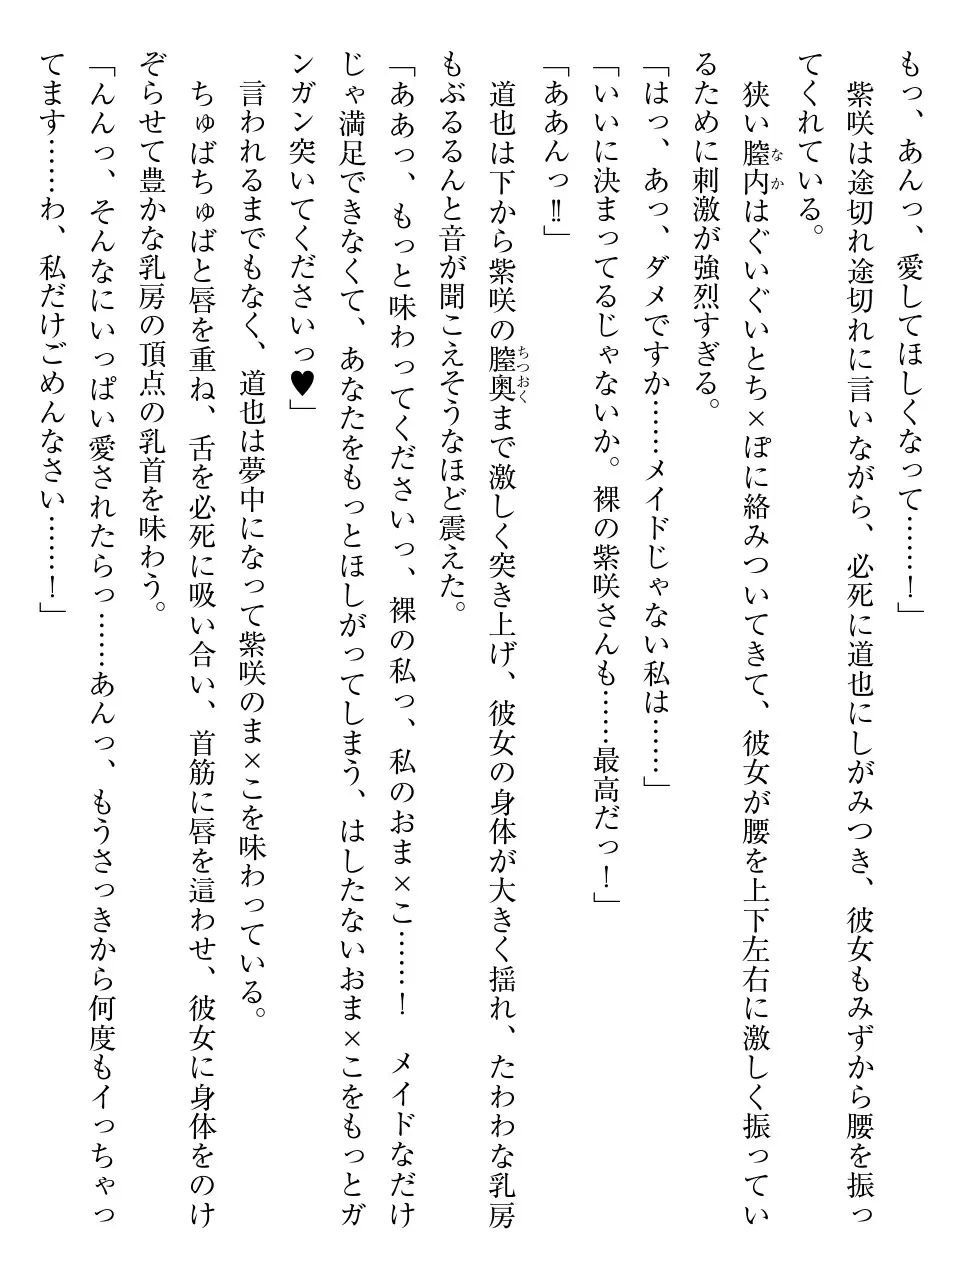 もっ、あんっ、愛してほしくなって……！」
紫咲は途切れ途切れに言いながら、必死に道也にしがみつき、彼女もみずから腰を振っ
てくれている。
なか
狭い膣内はぐいぐいとち×ぽに絡みついてきて、彼女が腰を上下左右に激しく振ってい
るために刺激が強烈すぎる。
「はっ、あっ、ダメですか……メイドじゃない私は……」
「いいに決まってるじゃないか。裸の紫咲さんも……最高だっ！」
「ああんっ‼」
ちつおく
道也は下から紫咲の膣奥まで激しく突き上げ、彼女の身体が大きく揺れ、たわわな乳房
もぶるるんと音が聞こえそうなほど震えた。
「ああっ、もっと味わってくださいっ、裸の私っ、私のおま×こ……！　メイドなだけ
じゃ満足できなくて、あなたをもっとほしがってしまう、はしたないおま×こをもっとガ
ンガン突いてくださいっ♥」
言われるまでもなく、道也は夢中になって紫咲のま×こを味わっている。
ちゅばちゅばと唇を重ね、舌を必死に吸い合い、首筋に唇を這わせ、彼女に身体をのけ
ぞらせて豊かな乳房の頂点の乳首を味わう。
「んんっ、そんなにいっぱい愛されたらっ……あんっ、もうさっきから何度もイっちゃっ
てます……わ、私だけごめんなさい……！」